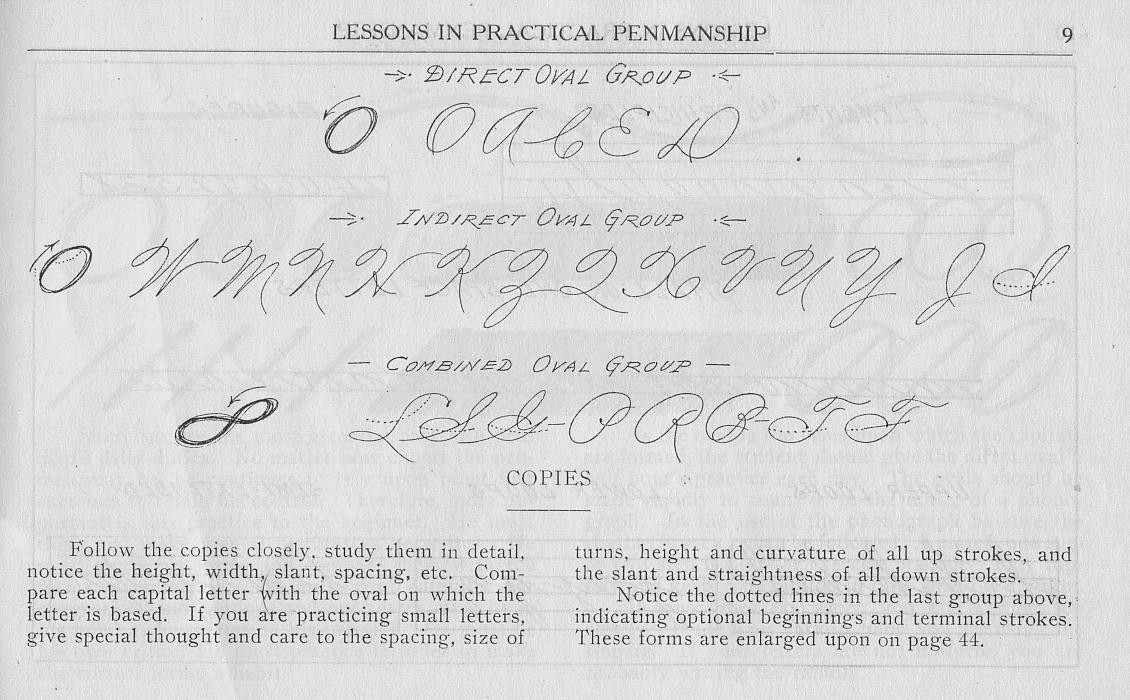 LESSONS IN PRACTICAL PENMANSHIP 9
DIRECT OVAL GROUP
O O A C E D
INDIRECT OVAL GROUP
O W M N H K Z Q X V U Y J I
COMBINED OVAL GROUP
L S G P R B T F
COPIES
Follow the copies closely, study them in detail,
notice the height, width, slant, spacing, etc. Com-
pare each capital letter with the oval on which the
letter is based. If you are practicing small letters,
give special thought and care to the spacing, size of
turns, height and curvature of all up strokes, and
the slant and straightness of all down strokes.
Notice the dotted lines in the last group above,
indicating optional beginnings and terminal strokes.
These forms are enlarged upon on page 44.